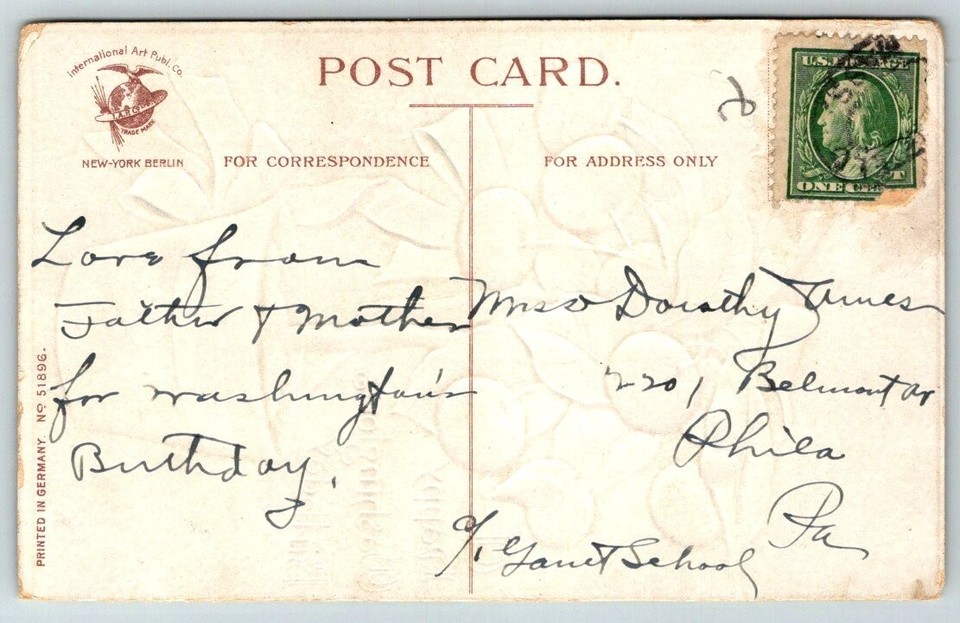 International Art Publ. Co.
I.A.P. Co.
TRADE MARK
NEW-YORK BERLIN
POST CARD.
FOR CORRESPONDENCE
FOR ADDRESS ONLY
U.S. POSTAGE
ONE CENT
Love from
Father & Mother
for Washington's
Birthday.
Miss Dorothy James
2201 Belmont Av
Phila
Pa
c/o School
PRINTED IN GERMANY. No 51896.